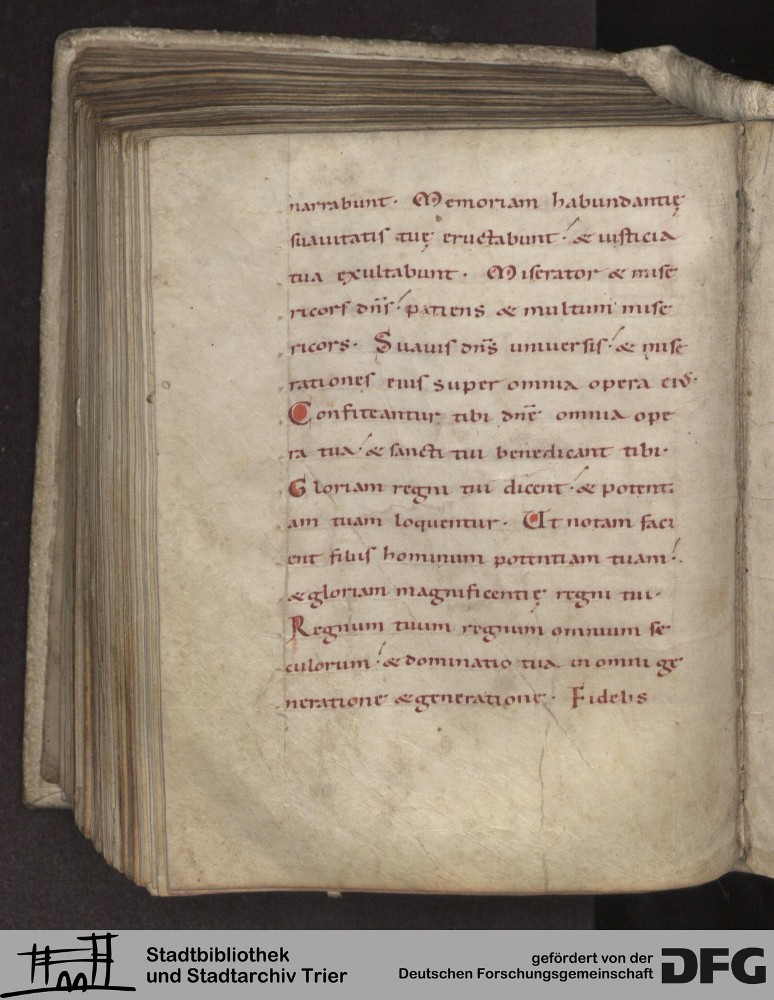 narrabunt. Memoriam habundantię
suauitatis tuę eructabunt. & iusticia
tua exultabunt. Miserator & mise
ricors dn̄s. patiens & multum mise
ricors. Suauis dn̄s uniuersis. & mise
rationes eius super omnia opera eius.
Confiteantur tibi dn̄e omnia ope
ra tua. & sancti tui benedicant tibi.
Gloriam regni tui dicent. & potenti
am tuam loquentur. Ut notam faci
ent filiis hominum potentiam tuam.
& gloriam magnificentię regni tui.
Regnum tuum regnum omnium se
culorum. & dominatio tua in omni ge
neratione & generatione. Fidelis
Stadtbibliothek
und Stadtarchiv Trier
gefördert von der
Deutschen Forschungsgemeinschaft
DFG